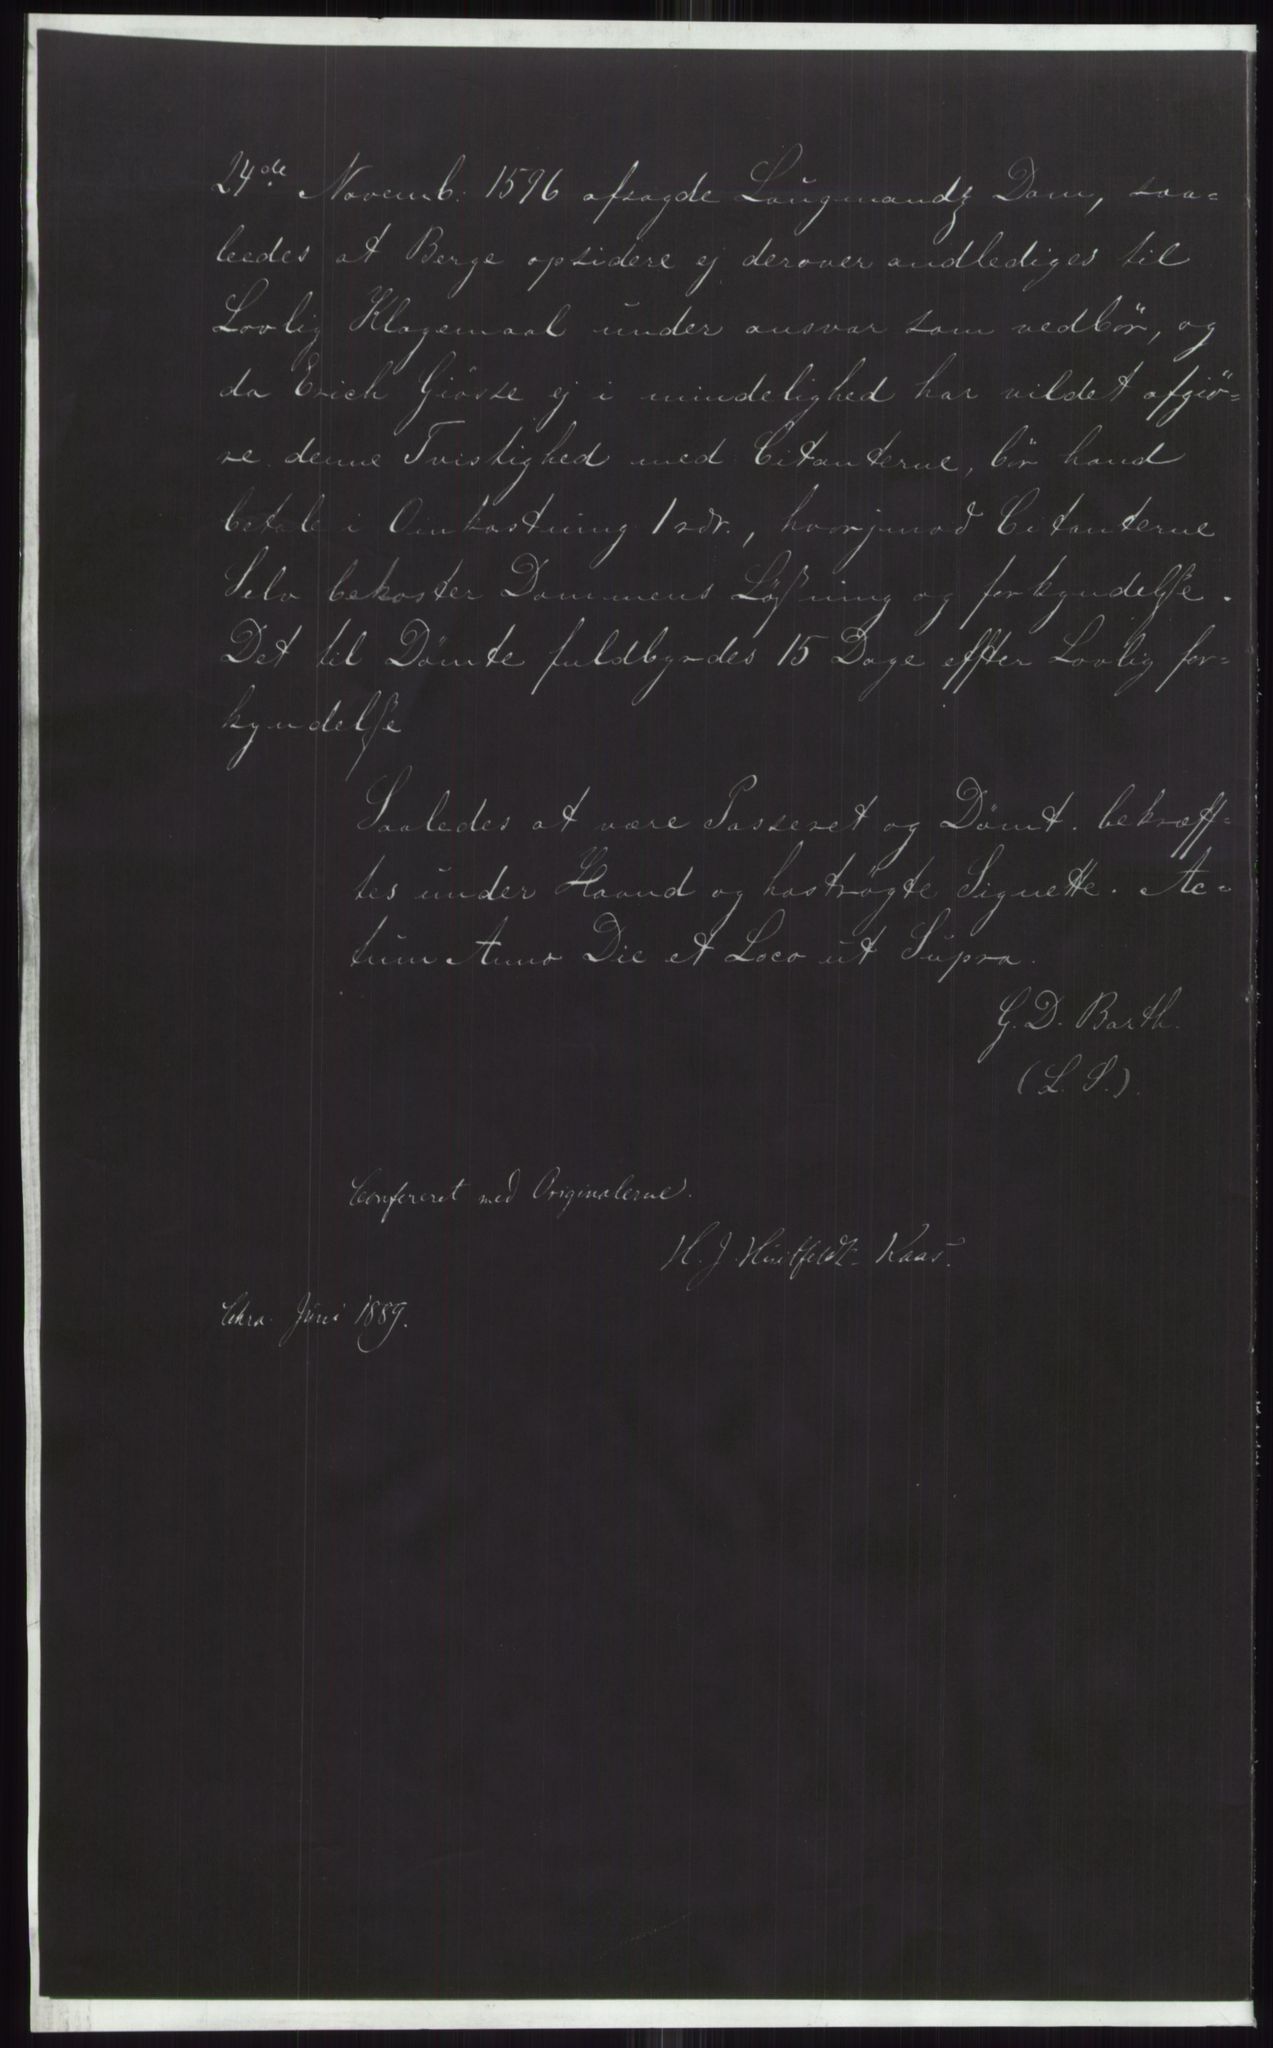 24de Novemb. 1596 afsagde Laugmandz Dom, saa=
leedes at Berge opsidere ej derover andlediges til
Lovlig Klagemaal under ansvar som vedbör, og
da Erich Giösse ej i mindelighed har vildet afgiö=
re denne Tvistighed med Citanterne, bör hand
betale i Omkostning 1 rdr., hvorjmod Citanterne
Selv bekoster Dommens Løsning og forkyndelße.
Det til Dömte fuldbyrdes 15 Dage effter Lovlig for=
kyndelße
Saaledes at være Passeret og Dömt. bekræff=
tes under Haand og hoströgte Signette. Ac=
tum Anno Die et Loco ut Supra.
G. D. Barth.
(L. S.).
Confereret med Originalerne.
H. J. Huitfeldt-Kaas.
Chra. Juni 1889.